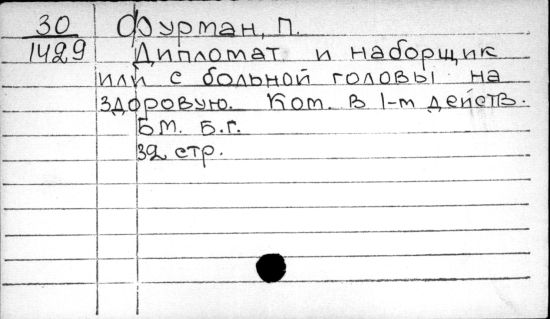 30
1429
Фурман, П.
Дипломат и наборщик
или с больной головы на
здоровую. Ком. в 1-м действ.
Бм. Б.г.
32 стр.